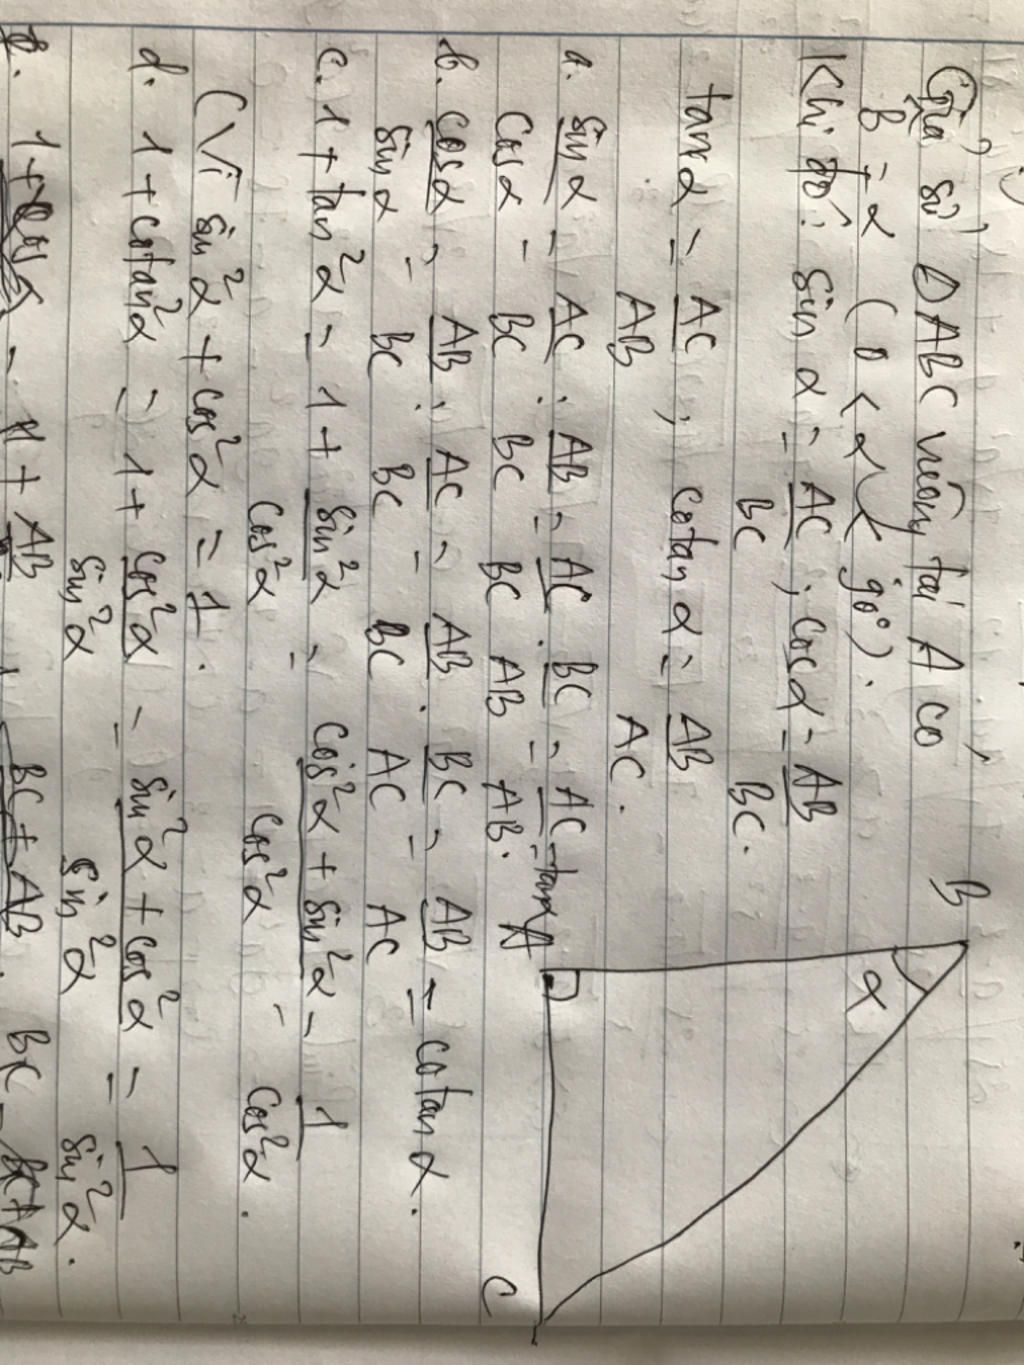 Giả sử ΔABC vuông tại A có
B̂ = α (0 < α < 90°).
Khi đó: sin α = AC/BC ; cos α = AB/BC.
tan α = AC/AB , cotan α = AB/AC.
a. sin α/cos α = AC/BC : AB/BC = AC/BC . BC/AB = AC/AB = tan α
b. cos α/sin α = AB/BC : AC/BC = AB/BC . BC/AC = AB/AC = cotan α.
c. 1 + tan²α = 1 + sin²α/cos²α = cos²α + sin²α/cos²α = 1/cos²α.
(Vì sin²α + cos²α = 1.
d. 1 + cotan²α = 1 + cos²α/sin²α = sin²α + cos²α/sin²α = 1/sin²α.
1 + AB
BC
B
α
A
C